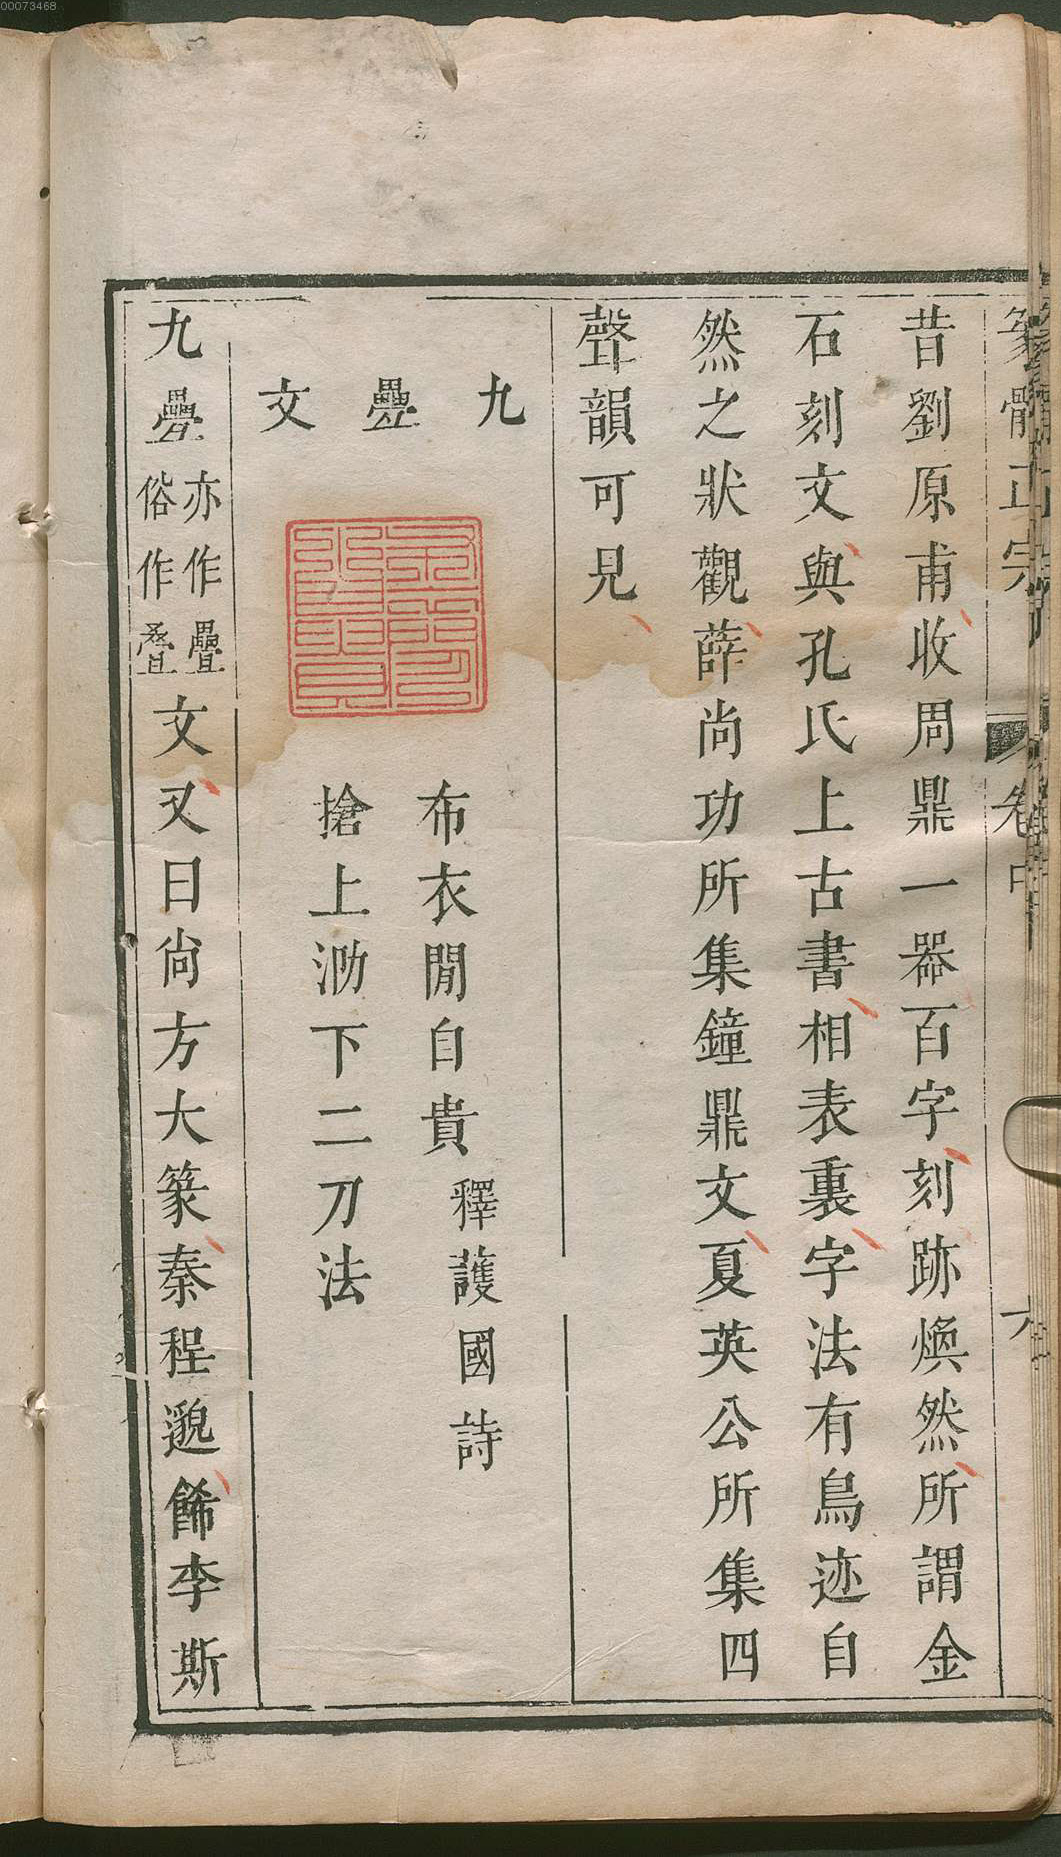 00073468
篆體正宗 卷中 六
昔劉原甫收周鼎一器百字刻跡煥然所謂金
石刻文與孔氏上古書相表裏字法有鳥迹自
然之狀觀薛尚功所集鐘鼎文夏英公所集四
聲韻可見
九疊文
布衣閒自貴釋護國詩
搶上泐下二刀法
九疊亦作疊俗作叠文又曰尙方大篆秦程邈餙李斯